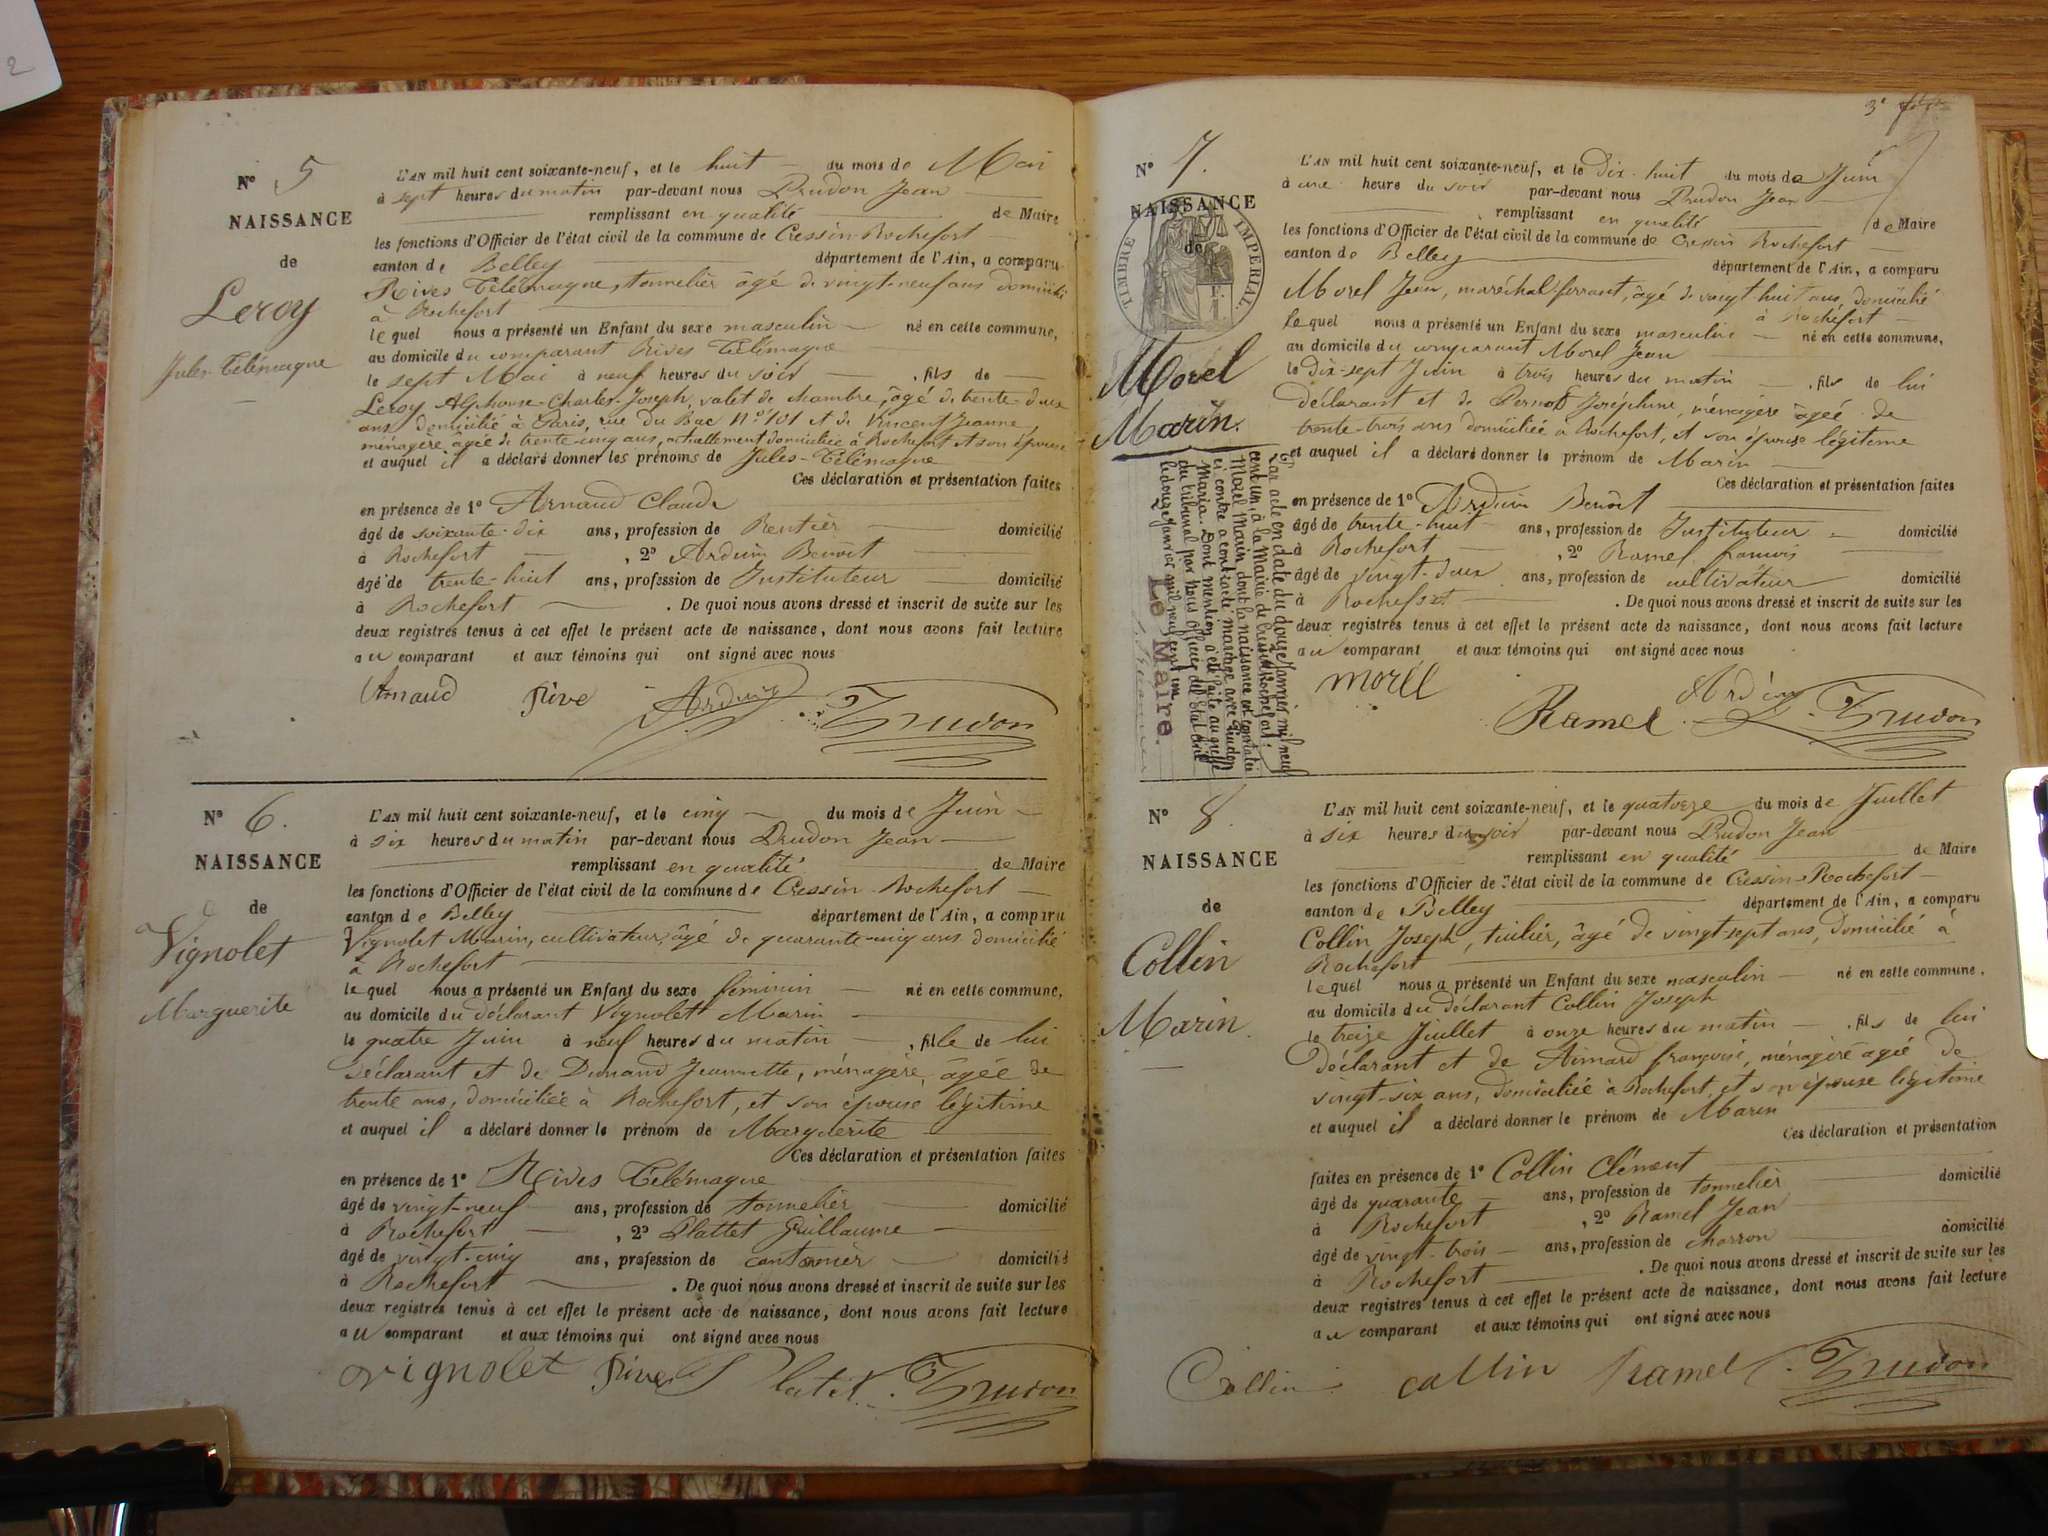 2
N° 5
NAISSANCE
de
Leroy
Jules-Télémaque
L'AN mil huit cent soixante-neuf, et le huit du mois de Mai
à sept heures du matin par-devant nous Prudon Jean
remplissant en qualité de Maire
les fonctions d'Officier de l'état civil de la commune de Cressin-Rochefort
canton de Belley département de l'Ain, a comparu
Rives Télémaque, tonnelier âgé de vingt-neuf ans domicilié
à Rochefort
lequel nous a présenté un Enfant du sexe masculin né en cette commune,
au domicile du comparant Rives Télémaque
le sept Mai à neuf heures du soir , fils de
Leroy Alphonse-Charles-Joseph, valet de chambre, âgé de trente-deux
ans, domicilié à Paris, rue du Bac N° 101 et de Vincent Jeanne
ménagère âgée de trente-cinq ans, actuellement domiciliée à Rochefort et son épouse
et auquel il a déclaré donner les prénoms de Jules-Télémaque
Ces déclaration et présentation faites
en présence de 1° Arnaud Claude
âgé de soixante-dix ans, profession de Rentier domicilié
à Rochefort , 2° Arduin Benoît
âgé de trente-huit ans, profession de Instituteur domicilié
à Rochefort . De quoi nous avons dressé et inscrit de suite sur les
deux registres tenus à cet effet le présent acte de naissance, dont nous avons fait lecture
au comparant et aux témoins qui ont signé avec nous
Arnaud Rive Arduin Prudon
N° 6.
NAISSANCE
de
Vignolet
Marguerite
L'AN mil huit cent soixante-neuf, et le cinq du mois de Juin
à six heures du matin par-devant nous Prudon Jean
remplissant en qualité de Maire
les fonctions d'Officier de l'état civil de la commune de Cressin-Rochefort
canton de Belley département de l'Ain, a comparu
Vignolet Marin, cultivateur, âgé de quarante-cinq ans domicilié
à Rochefort
lequel nous a présenté un Enfant du sexe féminin né en cette commune,
au domicile du déclarant Vignolet Marin
le quatre Juin à neuf heures du matin , fille de lui
déclarant et de Dunand Jeannette, ménagère, âgée de
trente ans, domiciliée à Rochefort, et son épouse légitime
et auquel il a déclaré donner le prénom de Marguerite
Ces déclaration et présentation faites
en présence de 1° Rives Télémaque
âgé de vingt-neuf ans, profession de tonnelier domicilié
à Rochefort , 2° Plattet Guillaume
âgé de vingt-cinq ans, profession de cantonnier domicilié
à Rochefort . De quoi nous avons dressé et inscrit de suite sur les
deux registres tenus à cet effet le présent acte de naissance, dont nous avons fait lecture
au comparant et aux témoins qui ont signé avec nous
vignolet Rives Platet Prudon
3e
N° 7.
NAISSANCE
de
TIMBRE IMPERIAL
Morel
Marin.
L'AN mil huit cent soixante-neuf, et le Dix-huit du mois de Juin
à une heure du soir par-devant nous Prudon Jean
remplissant en qualité de Maire
les fonctions d'Officier de l'état civil de la commune de Cressin Rochefort
canton de Belley département de l'Ain, a comparu
Morel Jean, maréchal ferrant, âgé de vingt huit ans, domicilié
à Rochefort
lequel nous a présenté un Enfant du sexe masculin né en cette commune,
au domicile du comparant Morel Jean
le Dix-sept Juin à trois heures du matin , fils de lui
déclarant et de Pernod Joséphine, ménagère âgée de
trente-trois ans domiciliée à Rochefort, et son épouse légitime
et auquel il a déclaré donner le prénom de Marin
Ces déclaration et présentation faites
en présence de 1° Arduin Benoît
âgé de trente-huit ans, profession de Instituteur domicilié
à Rochefort , 2° Ramel françois
âgé de vingt-deux ans, profession de cultivateur domicilié
à Rochefort . De quoi nous avons dressé et inscrit de suite sur les
deux registres tenus à cet effet le présent acte de naissance, dont nous avons fait lecture
au comparant et aux témoins qui ont signé avec nous
morel Ramel Arduin Prudon
Par acte en date du douze Janvier mil neuf
cent un, à la Mairie de Cressin Rochefort,
Morel Marin, dont la naissance est constatée
ci contre a contracté mariage avec Prudon
Maria. Dont mention a été faite au greffe
du tribunal par nous officier de l'Etat civil
le douze Janvier mil neuf cent un
Le Maire.
N° 8.
NAISSANCE
de
Collin
Marin
L'AN mil huit cent soixante-neuf, et le quatorze du mois de Juillet
à six heures du soir par-devant nous Prudon Jean
remplissant en qualité de Maire
les fonctions d'Officier de l'état civil de la commune de Cressin-Rochefort
canton de Belley département de l'Ain, a comparu
Collin Joseph, tuilier, âgé de vingt-sept ans, domicilié à
Rochefort
lequel nous a présenté un Enfant du sexe masculin né en cette commune.
au domicile du déclarant Collin Joseph
le treize Juillet à onze heures du matin , fils de lui
déclarant et de Aimard françoise, ménagère âgée de
vingt-six ans, domiciliée à Rochefort, et son épouse légitime
et auquel il a déclaré donner le prénom de Marin
Ces déclaration et présentation
faites en présence de 1° Collin Clément
âgé de quarante ans, profession de tonnelier domicilié
à Rochefort , 2° Ramel Jean
âgé de vingt-trois ans, profession de charron domicilié
à Rochefort . De quoi nous avons dressé et inscrit de suite sur les
deux registres tenus à cet effet le présent acte de naissance, dont nous avons fait lecture
au comparant et aux témoins qui ont signé avec nous
Collin collin Ramel Prudon